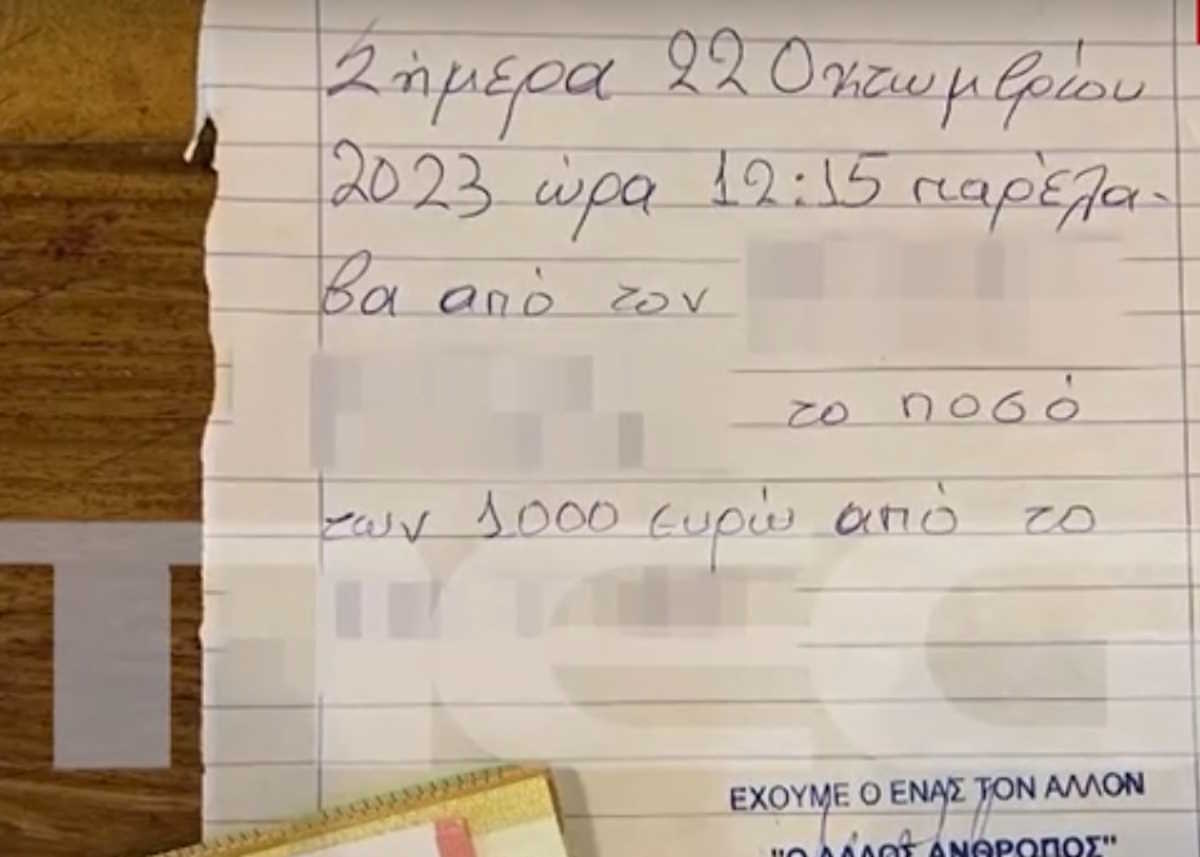 Σήμερα 22 Οκτωμβρίου
2023 ώρα 12:15 παρέλα-
βα από τον
το ποσό
των 1000 ευρώ από το
ΕΧΟΥΜΕ Ο ΕΝΑΣ ΤΟΝ ΑΛΛΟΝ
"Ο ΑΛΛΟΣ ΑΝΘΡΩΠΟΣ"